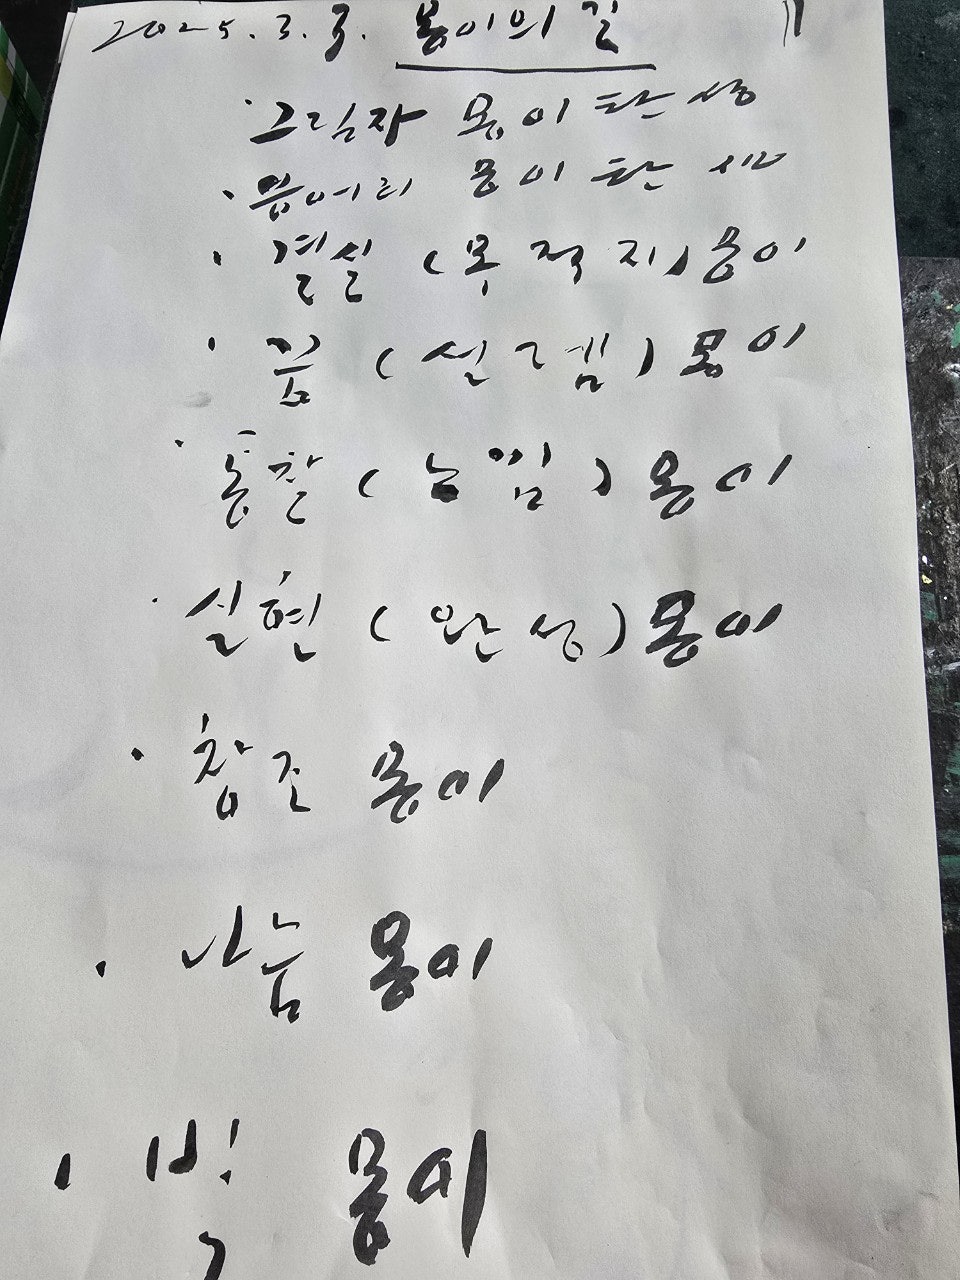 2025. 3. 3. 몽이의 길
· 그림자 몽이 탄생
· 몽어리 몽이 탄생
· 결실 (목적지) 몽이
· 꿈 (설렘) 몽이
· 통찰 (느낌) 몽이
· 실현 (완성) 몽이
· 창조 몽이
· 나눔 몽이
· 빅 몽이